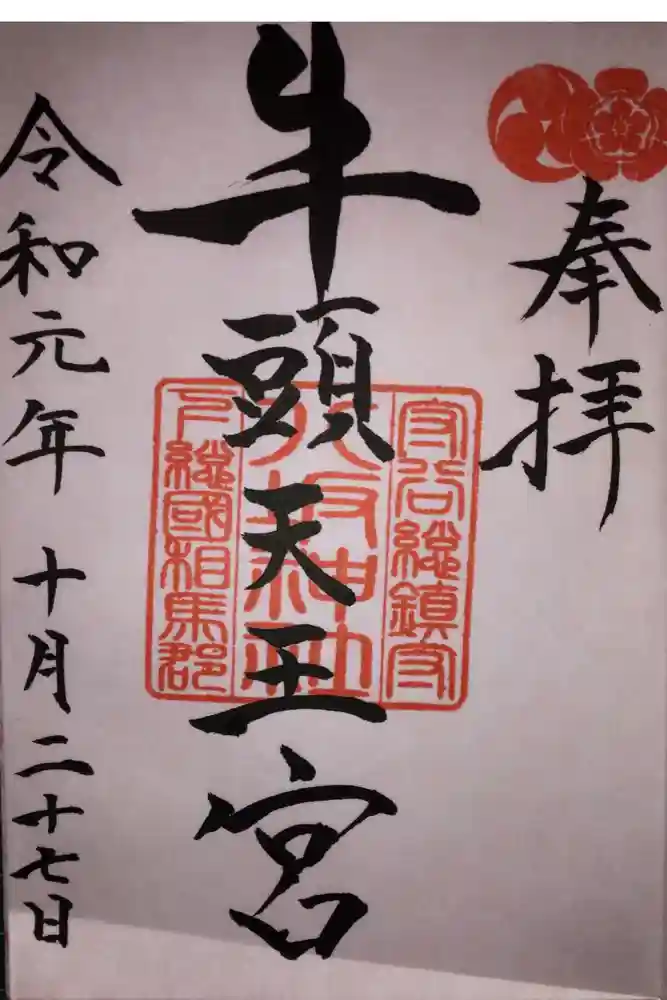 奉拝
牛頭天王宮
守谷総鎮守
八坂神社
下総國相馬郡
令和元年 十月二十七日